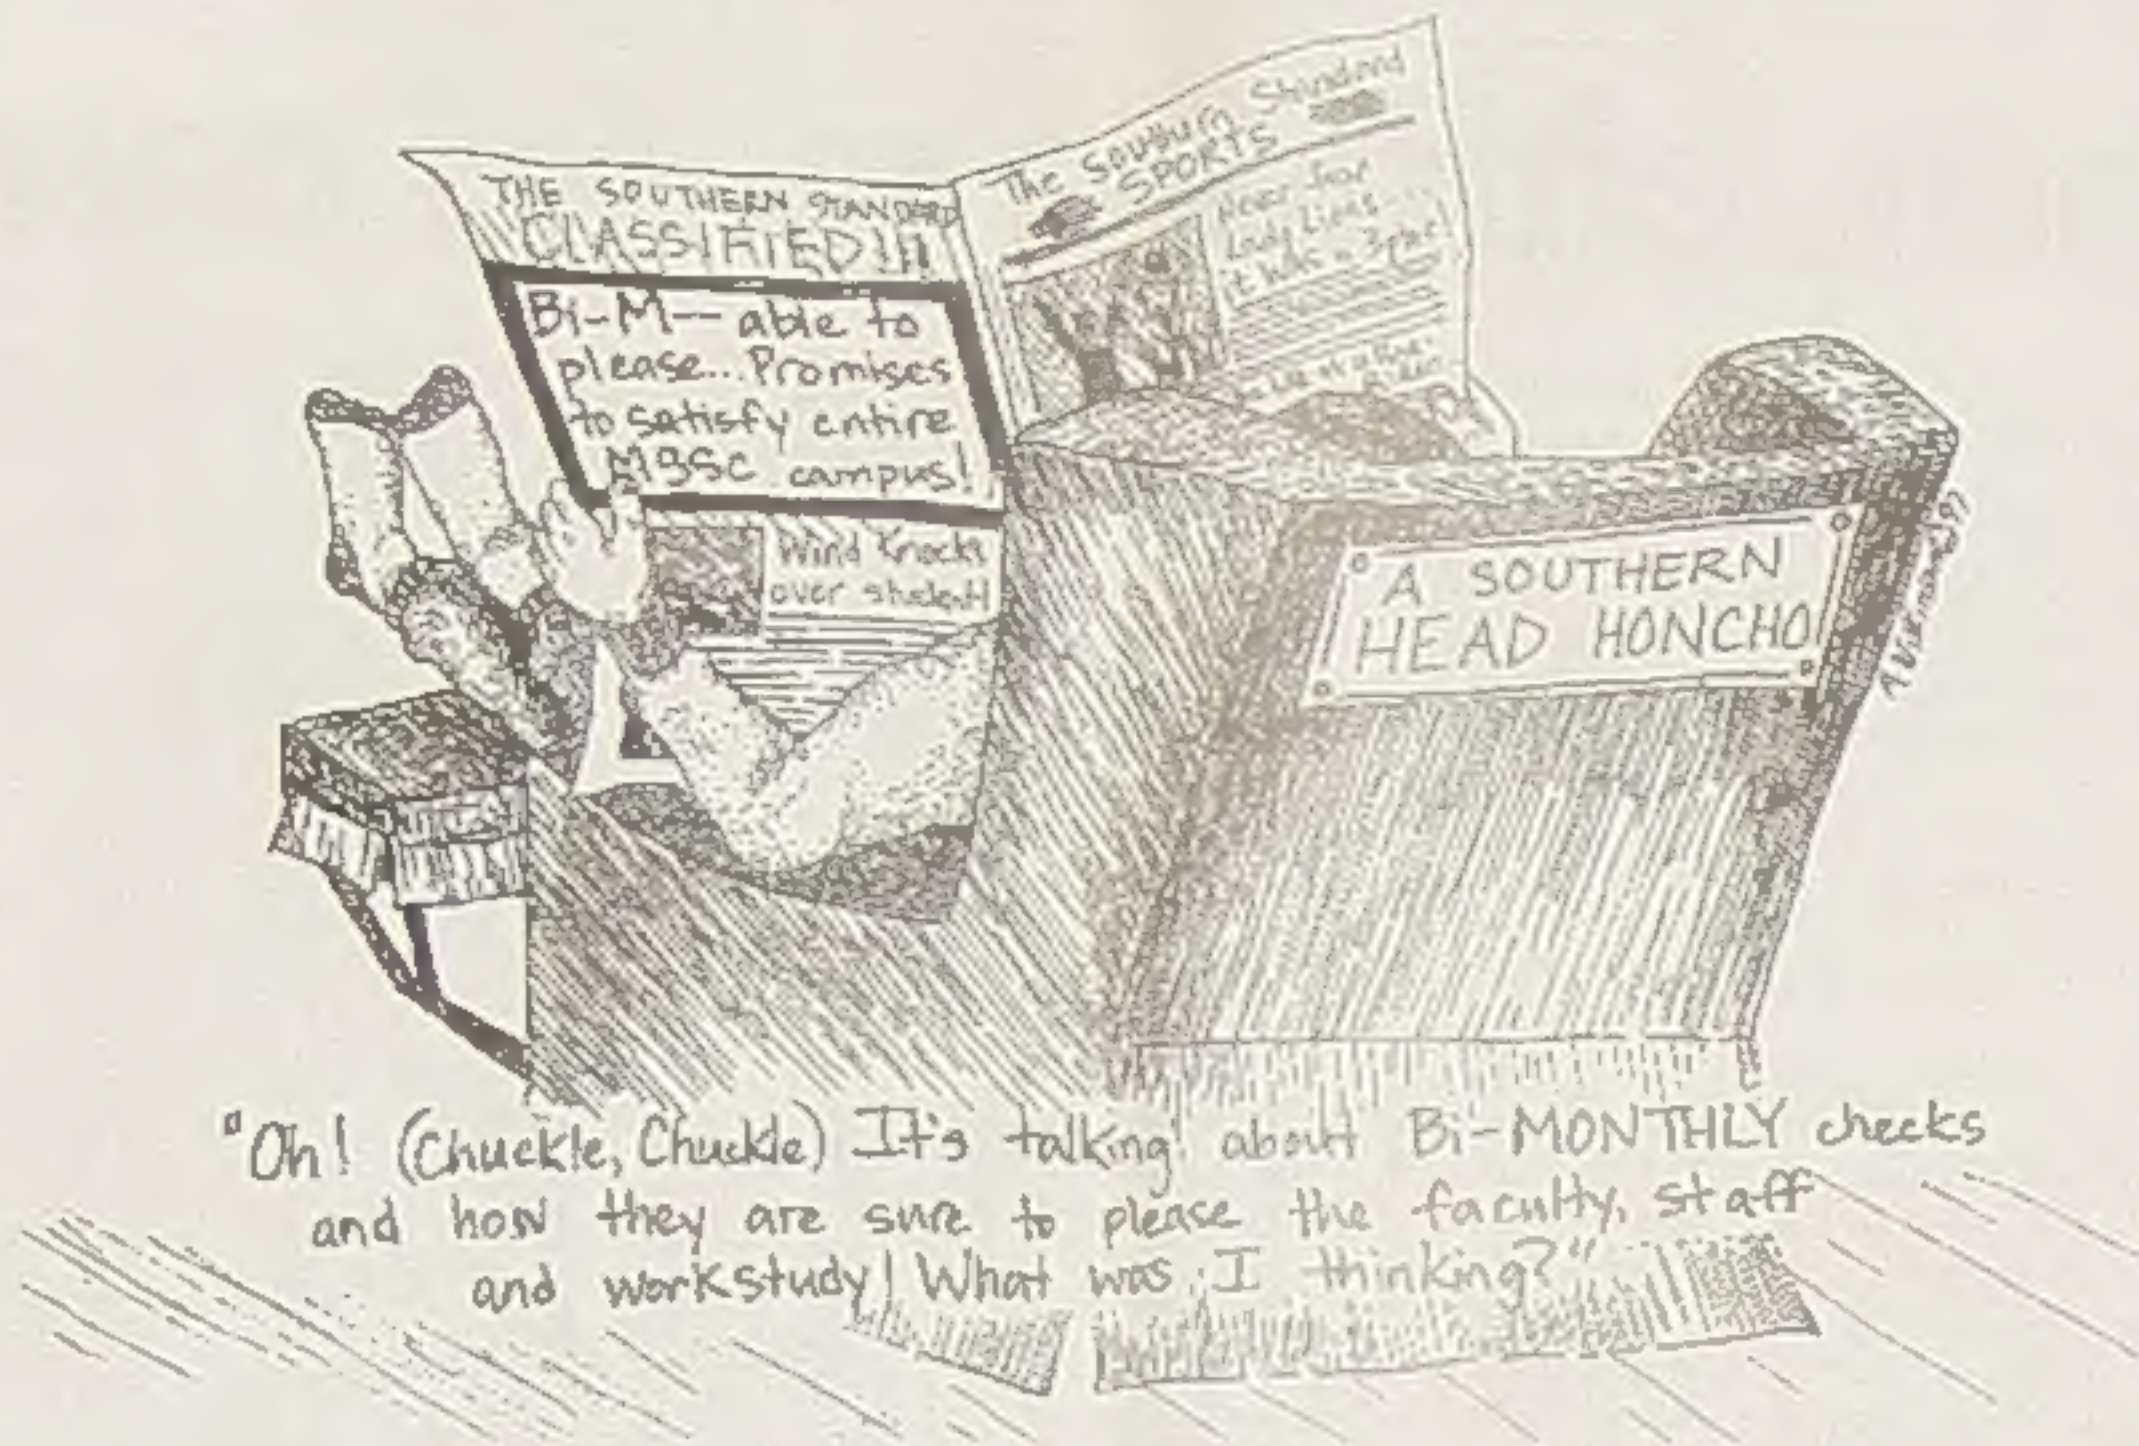 THE SOUTHERN STANDARD
CLASSIFIED!!!
Bi-M-- able to
please... Promises
to satisfy entire
MSSC campus!
Wind Knocks
over student!
The Southern Standard
SPORTS
Never fear
Lady Lions
it was a 3 pter!
A SOUTHERN
HEAD HONCHO
"Oh! (Chuckle, Chuckle) It's talking about Bi-MONTHLY checks
and how they are sure to please the faculty, staff
and workstudy! What was I thinking?"